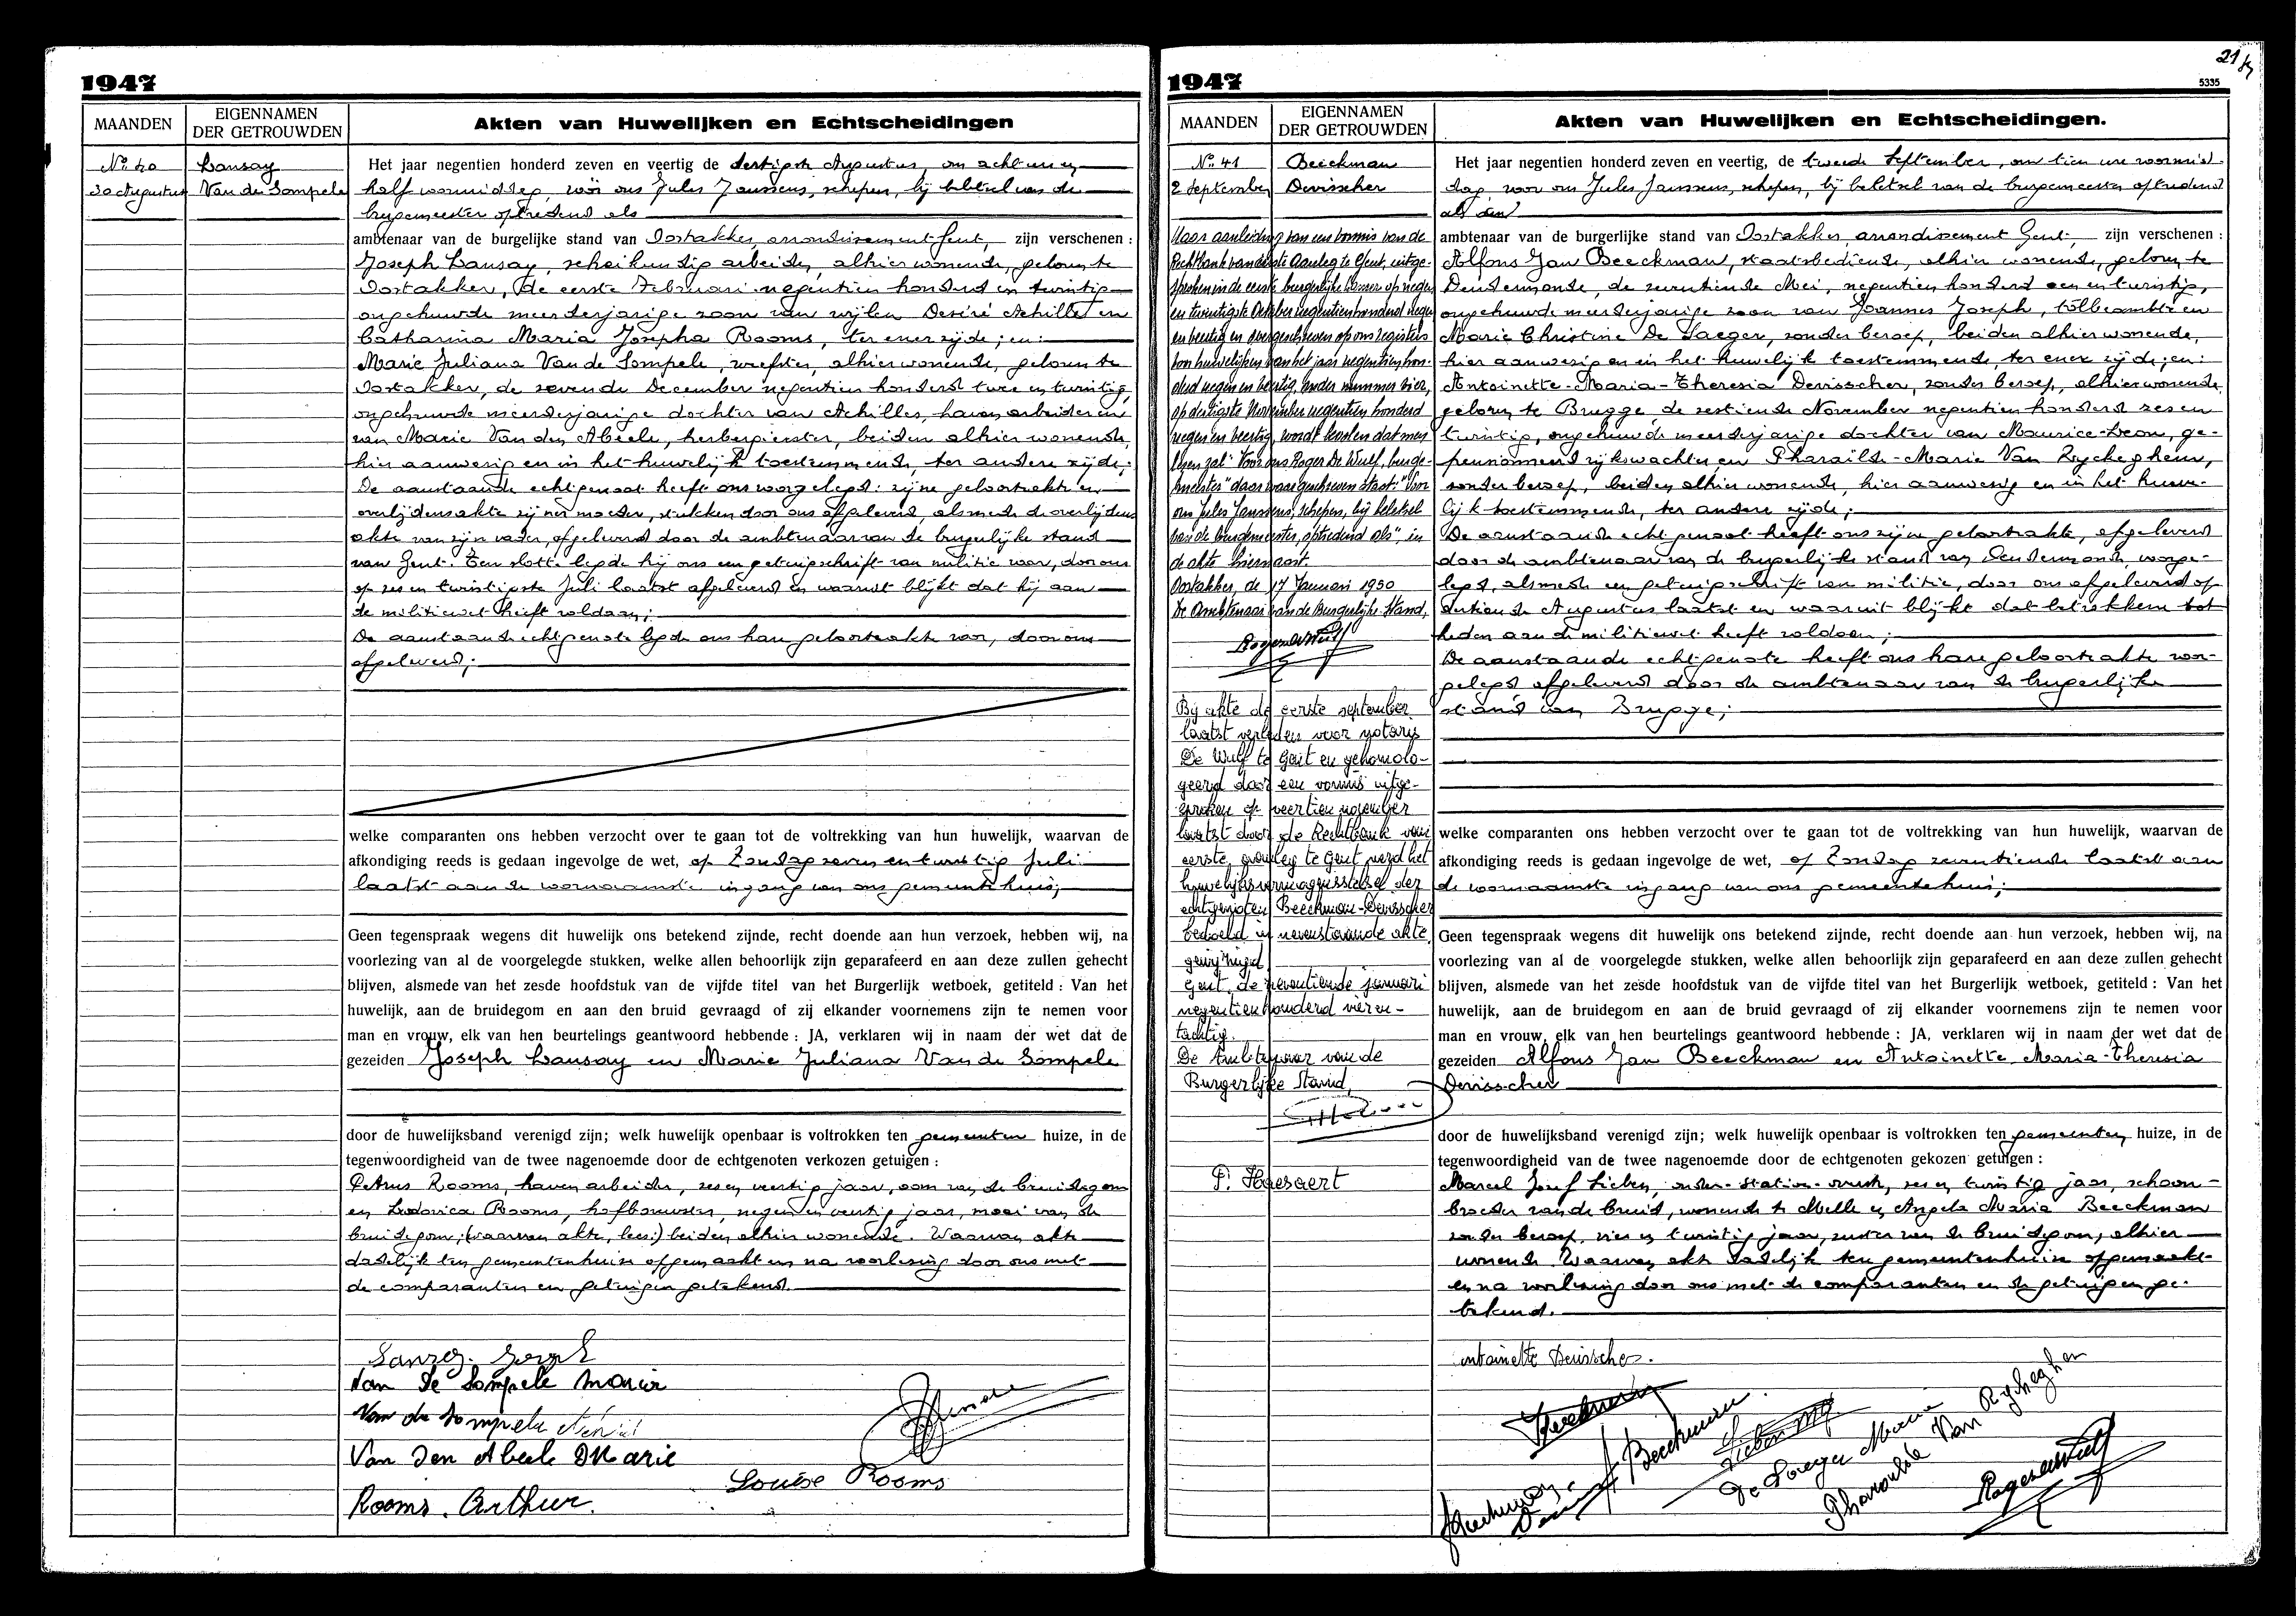 1947
MAANDEN
EIGENNAMEN
DER GETROUWDEN
Akten van Huwelijken en Echtscheidingen
No 40
30 Augustus
Lansay
Van de Sompele
Het jaar negentien honderd zeven en veertig de dertigste Augustus, om acht uur en
half voormiddag, vóór ons Jules Janssens, schepen, bij beletsel van de
burgemeester optredend als
ambtenaar van de burgelijke stand van Oostakker, arrondissement Gent, zijn verschenen :
Joseph Lansay, scheikundig arbeider, alhier wonende, geboren te
Oostakker, de eerste Februari negentien honderd en twintig
ongehuwde meerderjarige zoon van wijlen Desiré Achilles en
Catharina Maria Josepha Rooms, ter ener zijde ; en :
Marie Juliana Van de Sompele, weefster, alhier wonende, geboren te
Oostakker, de zevende December negentien honderd twee en twintig,
ongehuwde meerderjarige dochter van Achilles, havenarbeider en
van Marie Van den Abeele, herbergierster, beiden alhier wonende,
hier aanwezig en in het huwelijk toestemmende, ter andere zijde ;
De aanstaande echtgenoot heeft ons voorgelegd : zijne geboorteakte en
overlijdensakte zijner moeder, stukken door ons afgeleverd, alsmede de overlijdens
akte van zijn vader, afgeleverd door de ambtenaar van de burgerlijke stand
van Gent. Ten slotte legde hij ons een getuigschrift van militie voor, door ons
op zes en twintigste Juli laatst afgeleverd en waaruit blijkt dat hij aan
de militiewet heeft voldaan ;
De aanstaande echtgenote legde ons hare geboorteakte voor, door ons
afgeleverd ;
welke comparanten ons hebben verzocht over te gaan tot de voltrekking van hun huwelijk, waarvan de
afkondiging reeds is gedaan ingevolge de wet, op Zondag zeven en twintig Juli
laatst aan de voornaamste ingang van ons gemeentehuis ;
Geen tegenspraak wegens dit huwelijk ons betekend zijnde, recht doende aan hun verzoek, hebben wij, na
voorlezing van al de voorgelegde stukken, welke allen behoorlijk zijn geparafeerd en aan deze zullen gehecht
blijven, alsmede van het zesde hoofdstuk van de vijfde titel van het Burgerlijk wetboek, getiteld : Van het
huwelijk, aan de bruidegom en aan den bruid gevraagd of zij elkander voornemens zijn te nemen voor
man en vrouw, elk van hen beurtelings geantwoord hebbende : JA, verklaren wij in naam der wet dat de
gezeiden Joseph Lansay en Marie Juliana Van de Sompele
door de huwelijksband verenigd zijn; welk huwelijk openbaar is voltrokken ten gemeenten huize, in de
tegenwoordigheid van de twee nagenoemde door de echtgenoten verkozen getuigen :
Petrus Rooms, havenarbeider, zes en veertig jaar, oom van de bruidegom
en Ludovica Rooms, hofbouwster, negen en veertig jaar, moei van de
bruidegom ; (waarvan akte, lees :) beiden alhier wonende. Waarvan akte
dadelijk ten gemeentenhuize opgemaakt en na voorlezing door ons met
de comparanten en getuigen getekend.
Lansay Joseph
Van de Sompele Maria
Van de Sompele
Van Den Abeele Marie
Louise Rooms
Rooms. Arthur.
1947
21
5335
MAANDEN
EIGENNAMEN
DER GETROUWDEN
Akten van Huwelijken en Echtscheidingen.
No 41
2 September
Beeckman
Devisscher
Naar aanleiding van een vonnis van de
Rechtbank van eerste Aanleg te Gent, uitge-
sproken in de eerste burgerlijke kamer op negen
en twintigste Oktober negentienhonderd negen
en veertig en overgeschreven op ons registers
van huwelijken van het jaar negentien hon-
derd negen en veertig, onder nummer vier,
op dertigste November negentien honderd
negen en veertig, wordt bevolen dat men
lezen zal "Voor ons Roger De Wulf, burge-
meester" daar waar geschreven staat : "Voor
ons Jules Janssens, schepen, bij beletsel
van de burgemeester, optredend als", in
de akte hiernaast.
Oostakker, de 17 Januari 1950
De Ambtenaar van de Burgerlijke Stand,
Roger De Wulf
Bij akte de eerste september
laatst verleden voor notaris
De Wulf te Gent en gehomolo-
geerd door een vonnis uitge-
sproken op veertien november
laatst door de Rechtbank van
eerste aanleg te Gent werd het
huwelijksvermogensstelsel der
echtgenoten Beeckman-Devisscher
bedoeld in nevenstaande akte
gewijzigd.
Gent, de zeventiende januari
negentienhonderd vieren-
tachtig.
De Ambtenaar van de
Burgerlijke Stand,
F. Haesaert
Het jaar negentien honderd zeven en veertig, de tweede September, om tien ure voormid-
dag voor ons Jules Janssens, schepen, bij beletsel van de burgemeester optredend
als den
ambtenaar van de burgerlijke stand van Oostakker, arrondissement Gent, zijn verschenen :
Alfons Jan Beeckman, staatsbediende, alhier wonende, geboren te
Dendermonde, de zeventiende Mei, negentien honderd een en twintig,
ongehuwde meerderjarige zoon van Joannes Joseph, tolbeambte en
Marie Christine De Saeger, zonder beroep, beiden alhier wonende,
hier aanwezig en in het huwelijk toestemmende, ter ener zijde ; en :
Antoinette-Maria-Theresia Devisscher, zonder beroep, alhier wonende
geboren te Brugge de zestiende November negentien honderd zes en
twintig, ongehuwde meerderjarige dochter van Maurice-Leon, ge-
pensionneerd rijkswachter en Pharaïlde-Marie Van Ryckeghem,
zonder beroep, beiden alhier wonende, hier aanwezig en in het huwe-
lijk toestemmende, ter andere zijde ;
De aanstaande echtgenoot heeft ons zijn geboorteakte, afgeleverd
door de ambtenaar van de burgerlijke stand van Dendermonde, voorge-
legd, alsmede een getuigschrift van militie, door ons afgeleverd op
dertiende Augustus laatst en waaruit blijkt dat betrokkene tot
heden aan de militiewet heeft voldaan ;
De aanstaande echtgenote heeft ons hare geboorteakte voor-
gelegd afgeleverd door de ambtenaar van de burgerlijke
stand van Brugge ;
welke comparanten ons hebben verzocht over te gaan tot de voltrekking van hun huwelijk, waarvan de
afkondiging reeds is gedaan ingevolge de wet, op Zondag zeventiende laatst aan
de voornaamste ingang van ons gemeentehuis ;
Geen tegenspraak wegens dit huwelijk ons betekend zijnde, recht doende aan hun verzoek, hebben wij, na
voorlezing van al de voorgelegde stukken, welke allen behoorlijk zijn geparafeerd en aan deze zullen gehecht
blijven, alsmede van het zesde hoofdstuk van de vijfde titel van het Burgerlijk wetboek, getiteld : Van het
huwelijk, aan de bruidegom en aan de bruid gevraagd of zij elkander voornemens zijn te nemen voor
man en vrouw, elk van hen beurtelings geantwoord hebbende : JA, verklaren wij in naam der wet dat de
gezeiden Alfons Jan Beeckman en Antoinette Maria-Theresia
Devisscher
door de huwelijksband verenigd zijn; welk huwelijk openbaar is voltrokken ten gemeenten huize, in de
tegenwoordigheid van de twee nagenoemde door de echtgenoten gekozen getuigen :
Marcel Jozef Lieben, onder-station-overste, zes en twintig jaar, schoon-
broeder van de bruid, wonende te Melle en Angela Maria Beeckman
zonder beroep, vier en twintig jaar, zuster van de bruidegom, alhier
wonende. Waarvan akte dadelijk ten gemeentenhuize opgemaakt
en na voorlezing door ons met de comparanten en de getuigen ge-
tekend.
Antoinette Devisscher.
Beeckman
Beeckman
Lieben
De Saeger Marie
Pharaïlde Van Ryckeghem
Roger De Wulf